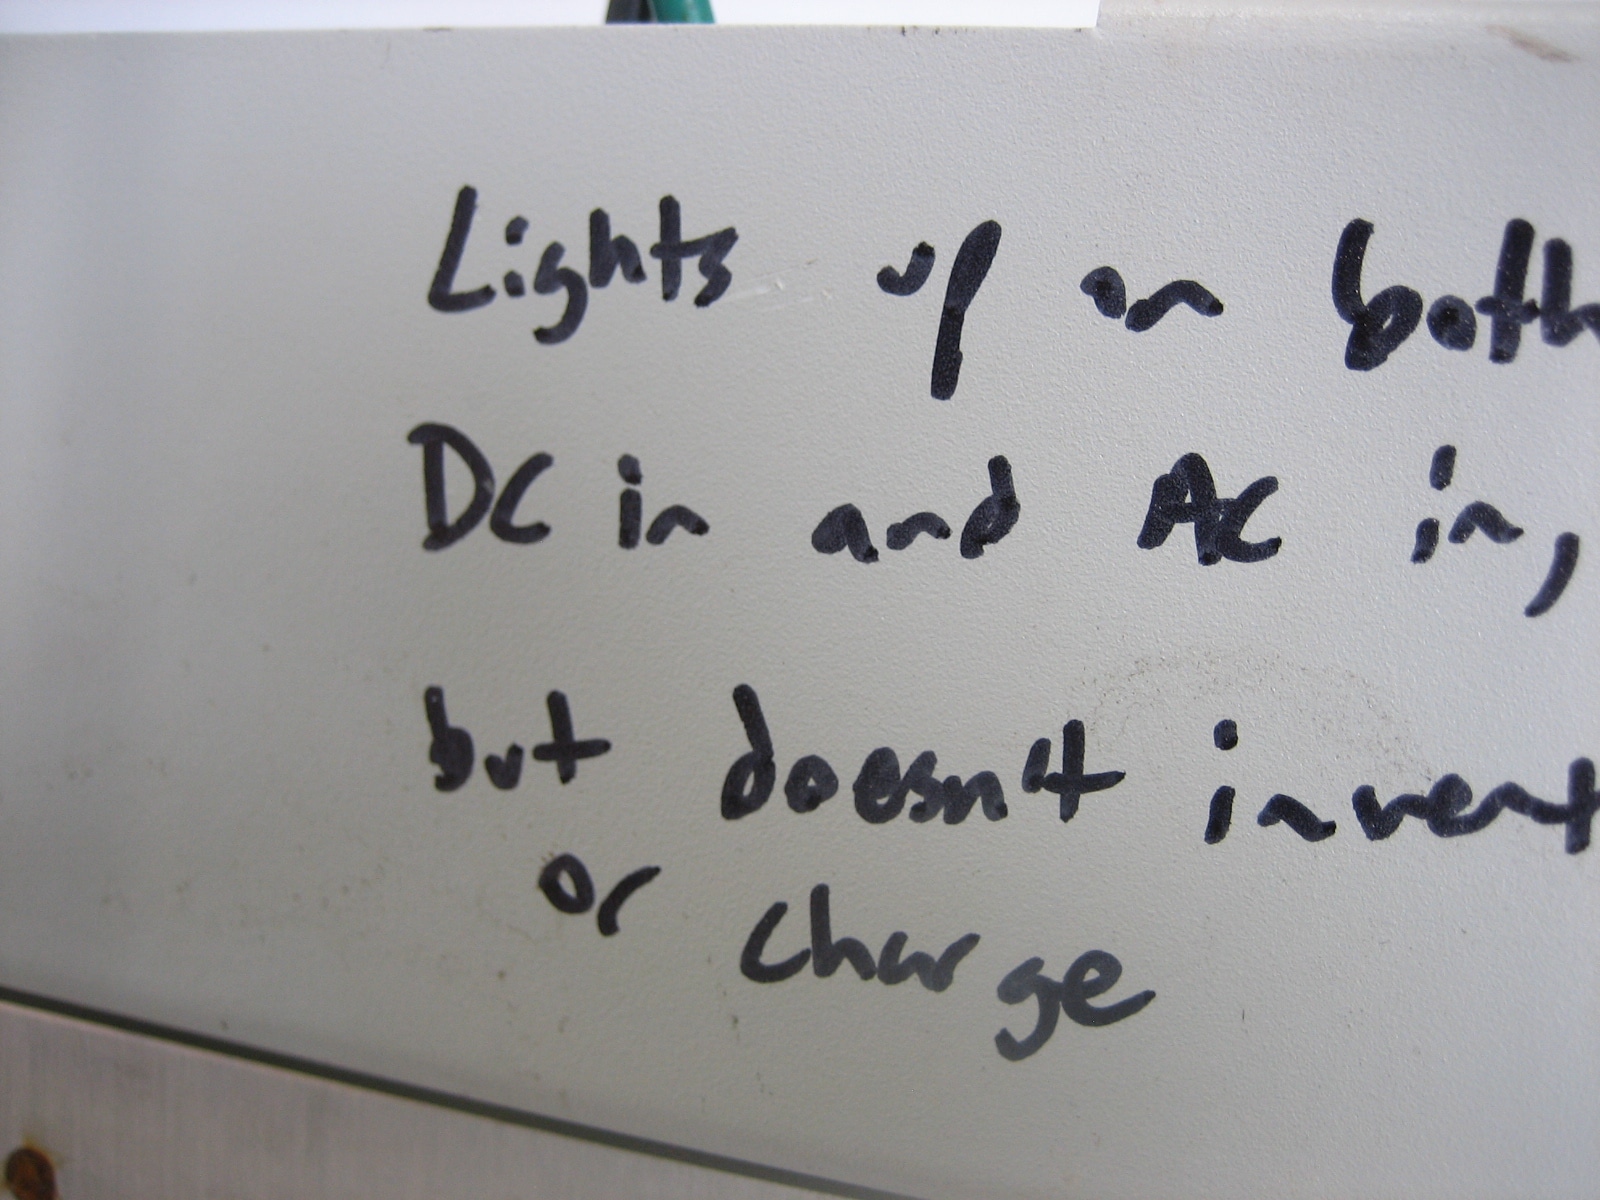 Lights up on both
DC in and AC in,
but doesn't invert
or charge